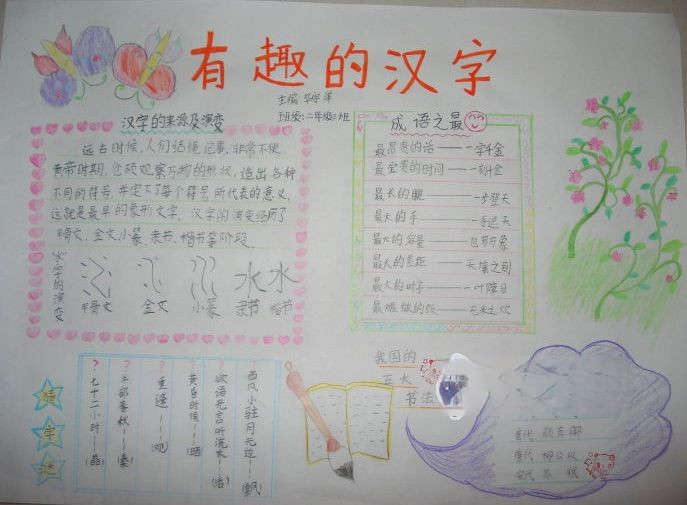 有趣的汉字
主编:华宗洋
班级:二年级三班
汉字的来源及演变
远古时候,人们结绳记事,非常不便。
黄帝时期,仓颉观察万物的形状,造出各种
不同的符号,并定下了每个符号所代表的意义,
这就是最早的象形文字。汉字的演变经历了
甲骨文、金文、小篆、隶书、楷书等阶段。
"水"字的演变
水 水
甲骨文 金文 小篆 隶书 楷书
成语之最
最昂贵的话——一字千金
最宝贵的时间——一刻千金
最长的腿——一步登天
最大的手——一手遮天
最大的容量——包罗万象
最大的差距——天壤之别
最大的叶子——一叶障目
最难做的饭——无米之炊
猜字谜
? 七十二小时——(晶)
? 半部春秋——(秦)
? 重逢——(观)
? 黄昏时候——(晒)
? 欲语无言听流水——(活)
我国的
五大
书法
唐代 颜真卿
唐代 柳公权
宋代 苏轼